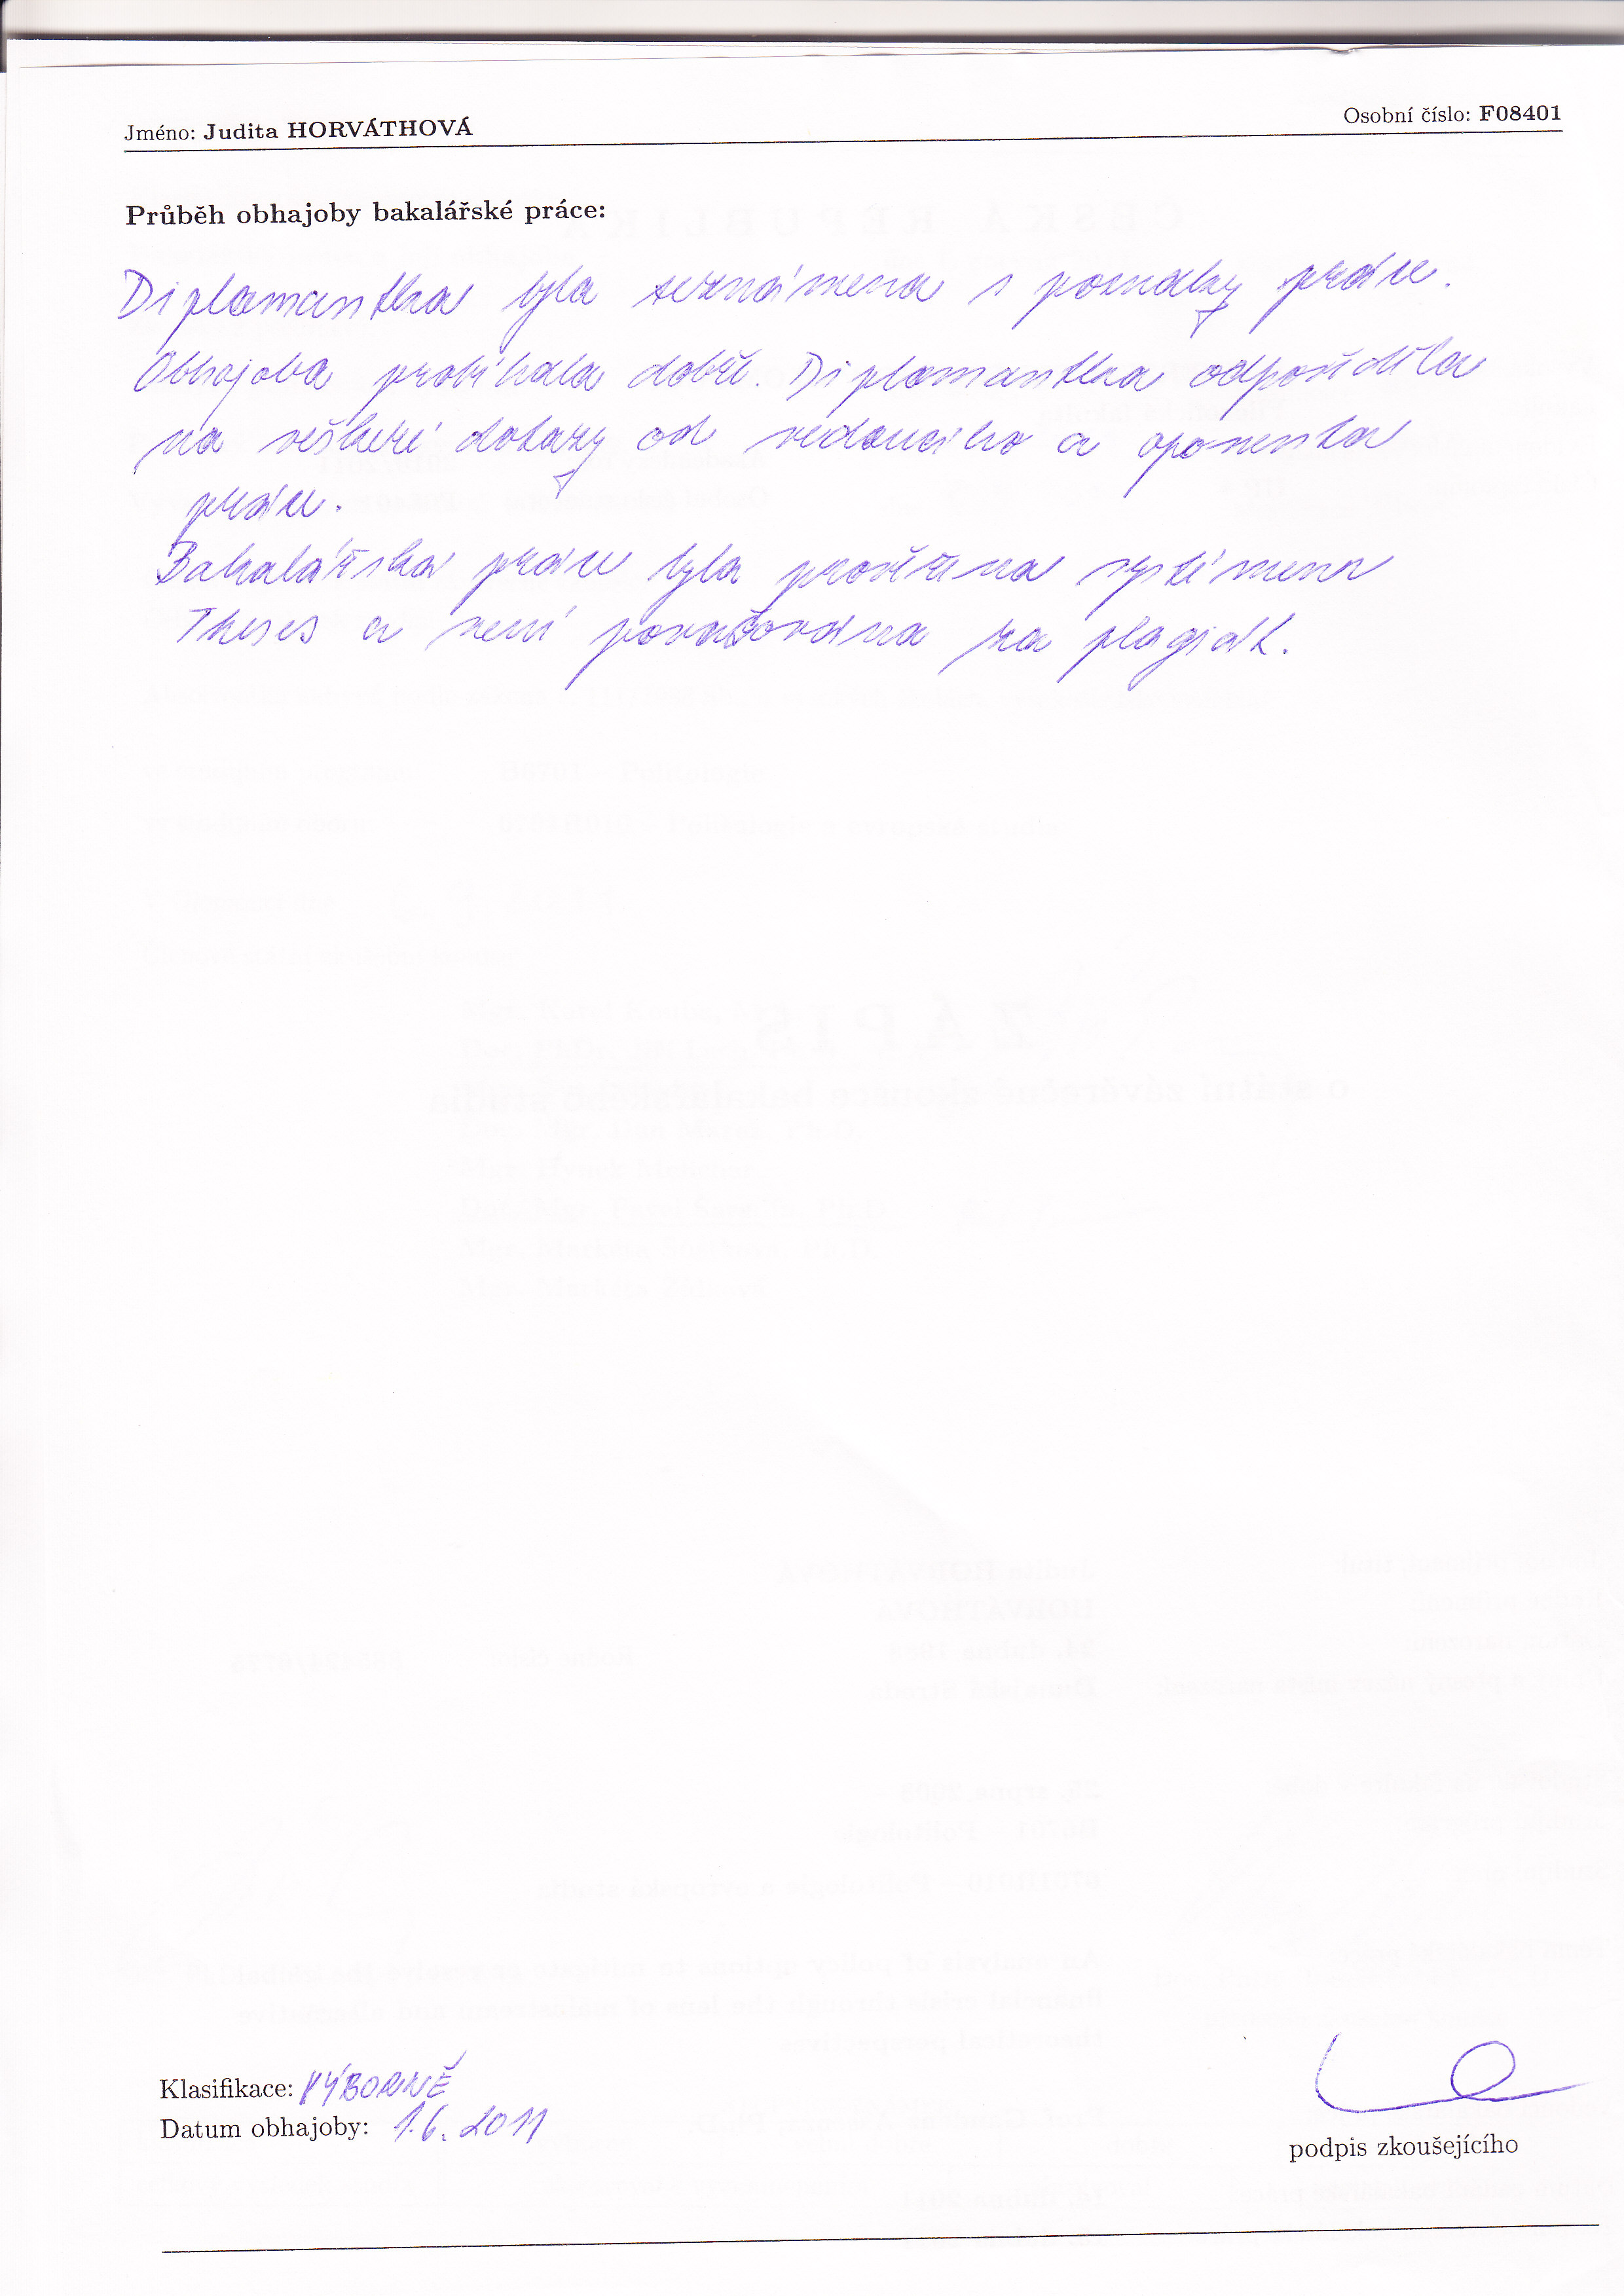 Jméno: Judita HORVÁTHOVÁ
Osobní číslo: F08401
Průběh obhajoby bakalářské práce:
Diplomantka byla seznámena s posudky práce.
Obhajoba probíhala dobře. Diplomantka odpověděla
na veškeré dotazy od vedoucího a oponenta
práce.
Bakalářská práce byla prověřena systémem
Theses a není považována za plagiát.
Klasifikace: VÝBORNĚ
Datum obhajoby: 1.6.2011
podpis zkoušejícího